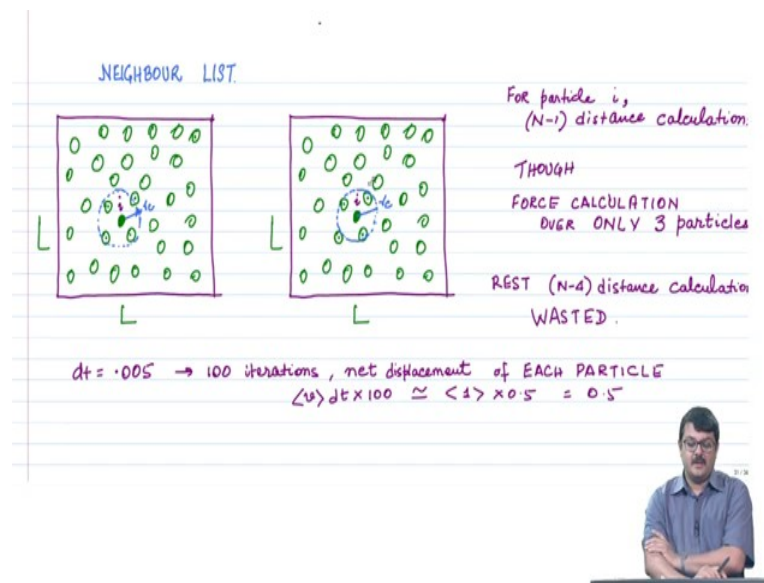 NEIGHBOUR LIST.
For particle i,
(N-1) distance calculation.
THOUGH
FORCE CALCULATION
OVER ONLY 3 particles
REST (N-4) distance calculation
WASTED.
i
rc
L
L
i
rc
L
L
dt = .005 → 100 iterations, net displacement of EACH PARTICLE
<v> dt × 100 ≃ <1> × 0.5 = 0.5